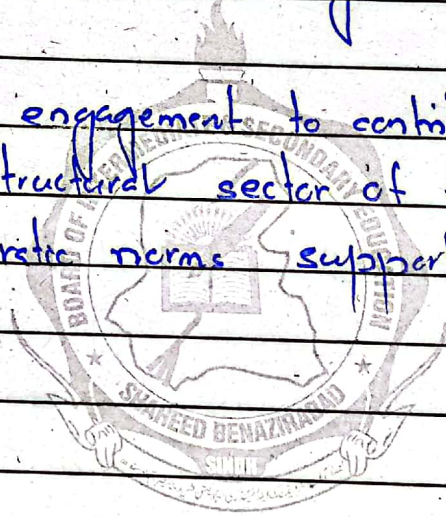 engagement to contin
tructural sector of
ratic norms suppor
BOARD OF INTERMEDIATE & SECONDARY EDUCATION
SHAHEED BENAZIRABAD
SINDH